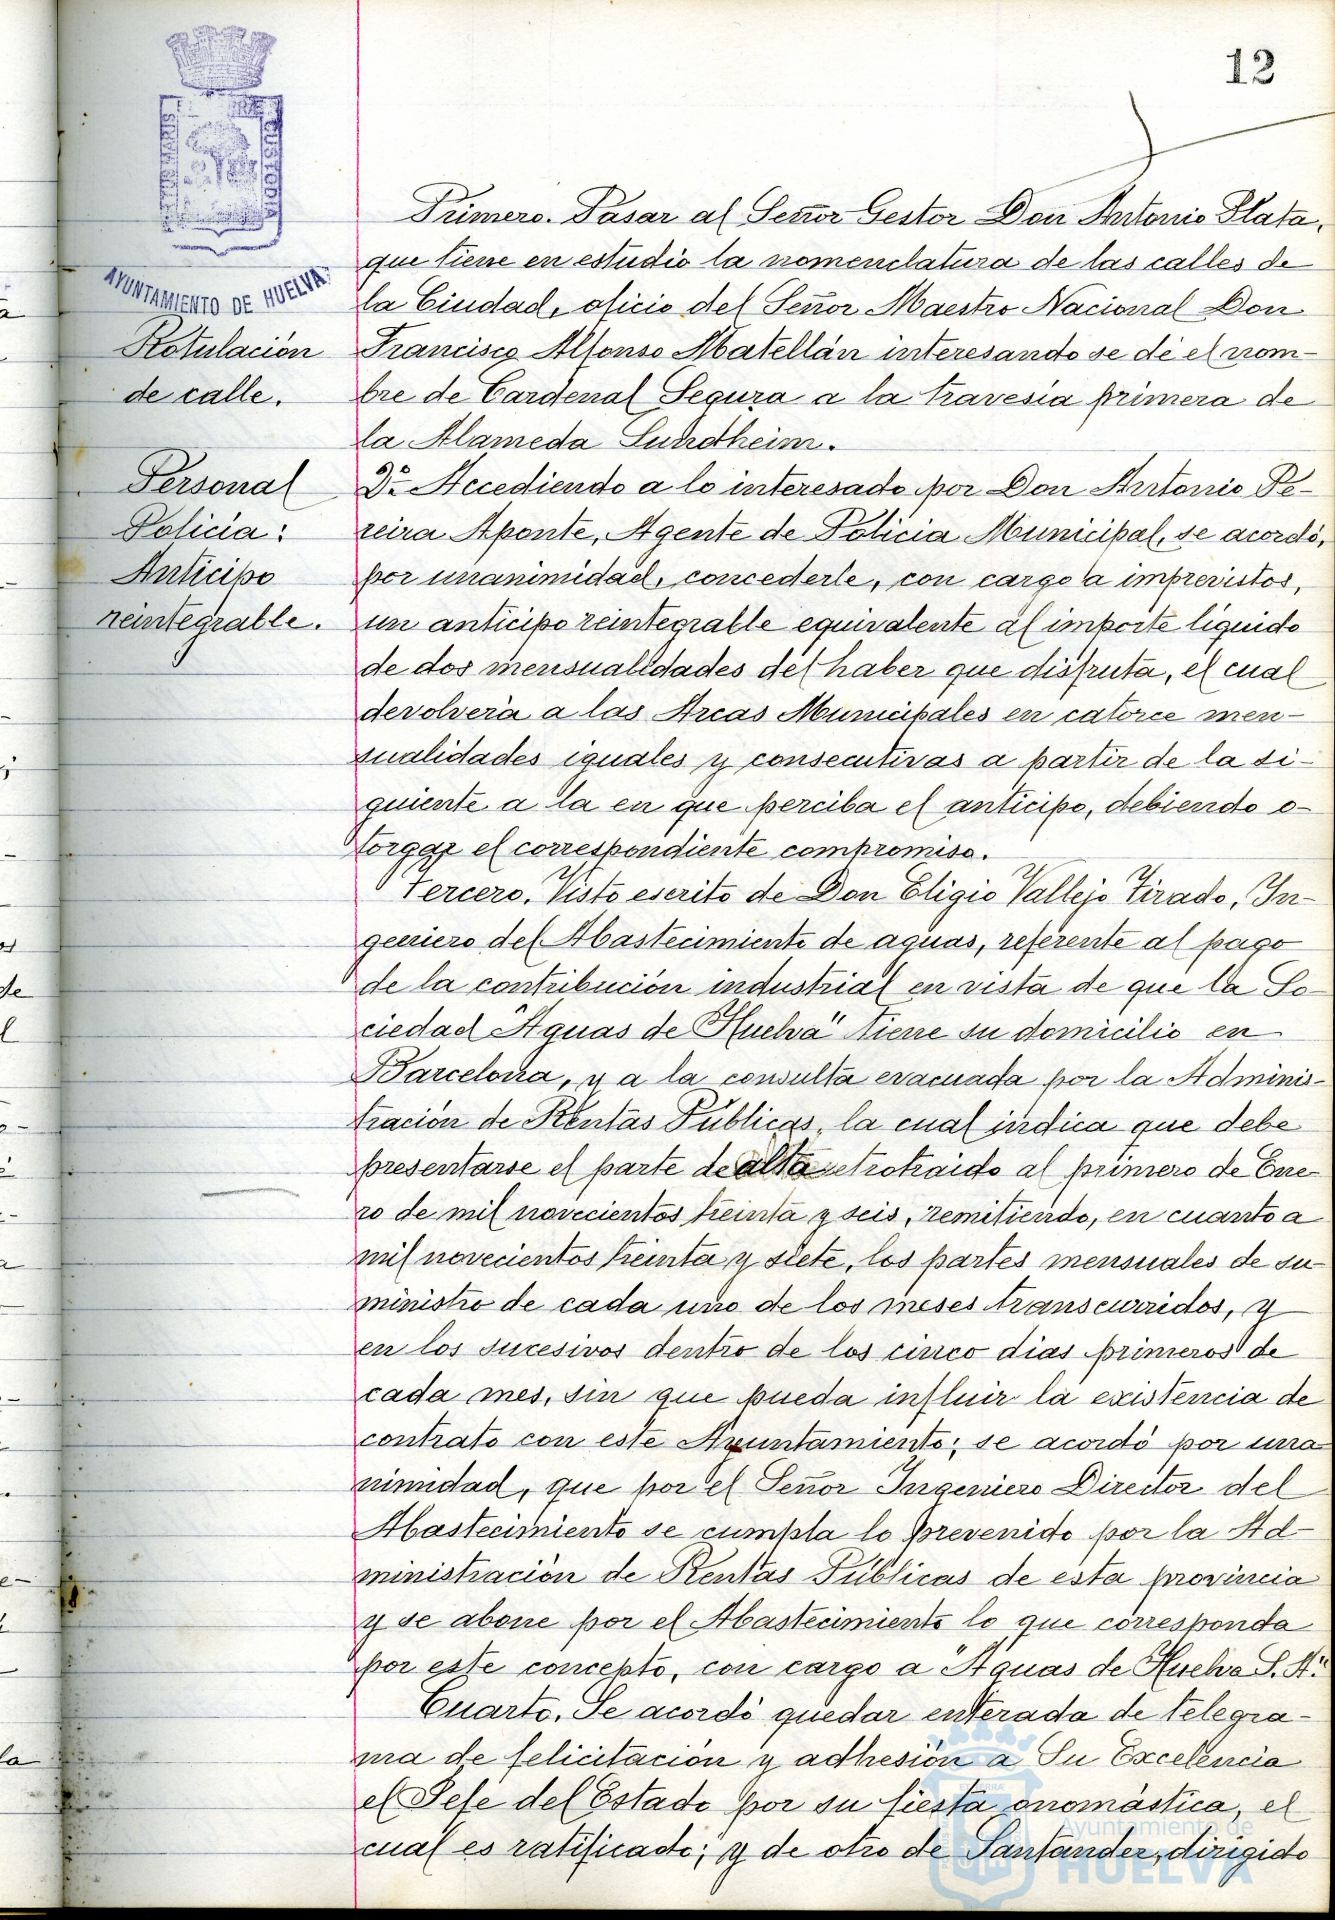 12
PORTUS MARIS ET TERRÆ CUSTODIA
AYUNTAMIENTO DE HUELVA
Rotulación
de calle.
Personal
Policía:
Anticipo
reintegrable.
Primero. Pasar al Señor Gestor Don Antonio Plata,
que tiene en estudio la nomenclatura de las calles de
la Ciudad, oficio del Señor Maestro Nacional Don
Francisco Alfonso Matellán interesando se dé el nom-
bre de Cardenal Segura a la travesía primera de
la Alameda Sundheim.
2º- Accediendo a lo interesado por Don Antonio Pe-
reira Aponte, Agente de Policía Municipal, se acordó,
por unanimidad, concederle, con cargo a imprevistos,
un anticipo reintegrable equivalente al importe líquido
de dos mensualidades del haber que disfruta, el cual
devolverá a las Arcas Municipales en catorce men-
sualidades iguales y consecutivas a partir de la si-
guiente a la en que perciba el anticipo, debiendo o-
torgar el correspondiente compromiso.
Tercero. Visto escrito de Don Eligio Vallejo Tirado, In-
geniero del Abastecimiento de aguas, referente al pago
de la contribución industrial en vista de que la So-
ciedad "Aguas de Huelva" tiene su domicilio en
Barcelona, y a la consulta evacuada por la Adminis-
tración de Rentas Públicas, la cual indica que debe
presentarse el parte de alta retrotraido al primero de Ene-
ro de mil novecientos treinta y seis, remitiendo, en cuanto a
mil novecientos treinta y siete, los partes mensuales de su-
ministro de cada uno de los meses transcurridos, y
en los sucesivos dentro de los cinco dias primeros de
cada mes, sin que pueda influir la existencia de
contrato con este Ayuntamiento; se acordó por una-
nimidad, que por el Señor Ingeniero Director del
Abastecimiento se cumpla lo prevenido por la Ad-
ministración de Rentas Públicas de esta provincia
y se abone por el Abastecimiento lo que corresponda
por este concepto, con cargo a "Aguas de Huelva S.A."
Cuarto. Se acordó quedar enterada de telegra-
ma de felicitación y adhesión a Su Excelencia
el Jefe del Estado por su fiesta onomástica, el
cual es ratificado; y de otro de Santander, dirigido
Ayuntamiento de
HUELVA